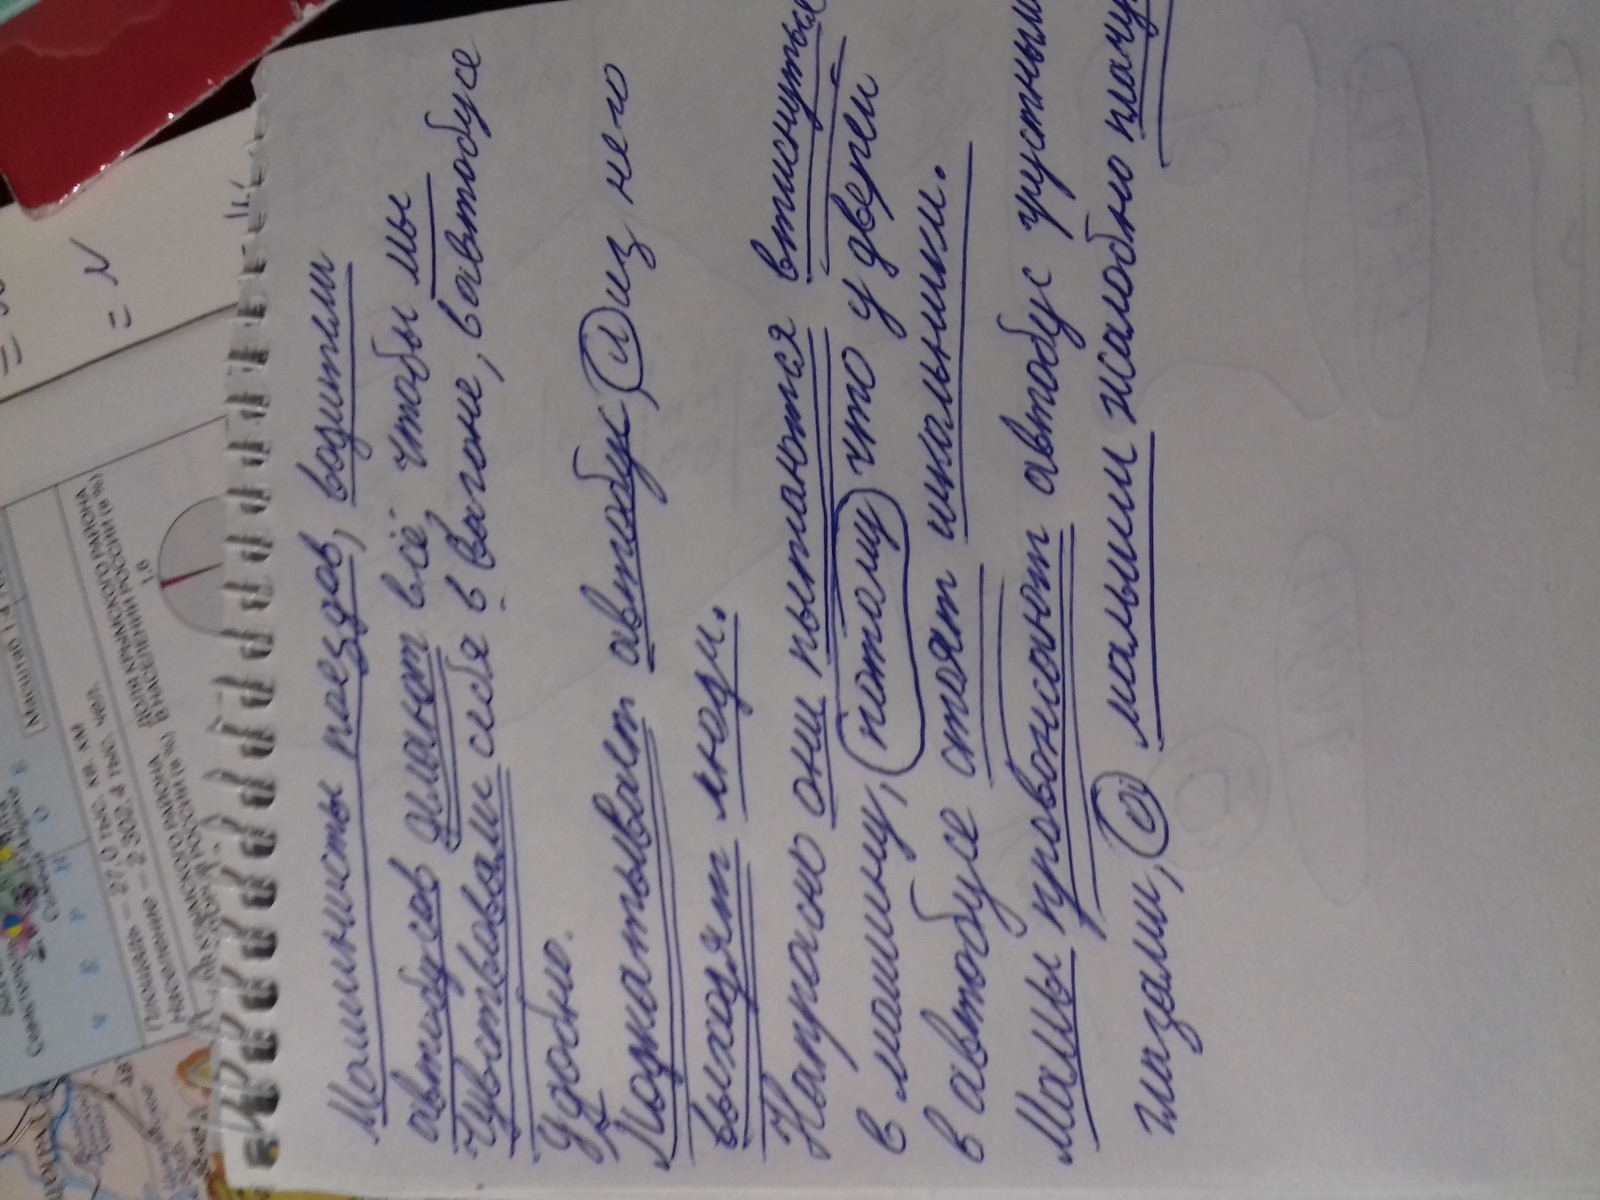 Машинисты поездов, водители
автобусов делают всё, чтобы мы
чувствовали себя в вагоне, в автобусе
удобно.
Подкатывает автобус, и из него
выходят люди.
Напрасно они пытаются втиснуться
в машину, потому что у дверей
в автобусе стоят школьники.
Мамы провожают автобус грустными
глазами, а малыши жалобно плачу
Масштаб 1:4
Площадь – 27,0 тыс. кв. км
Население – 2 302,4 тыс. чел.
ДОЛЯ КРЫМСКОГО РАЙОНА
В НАСЕЛЕНИИ РОССИИ (в %)
1,6
= N